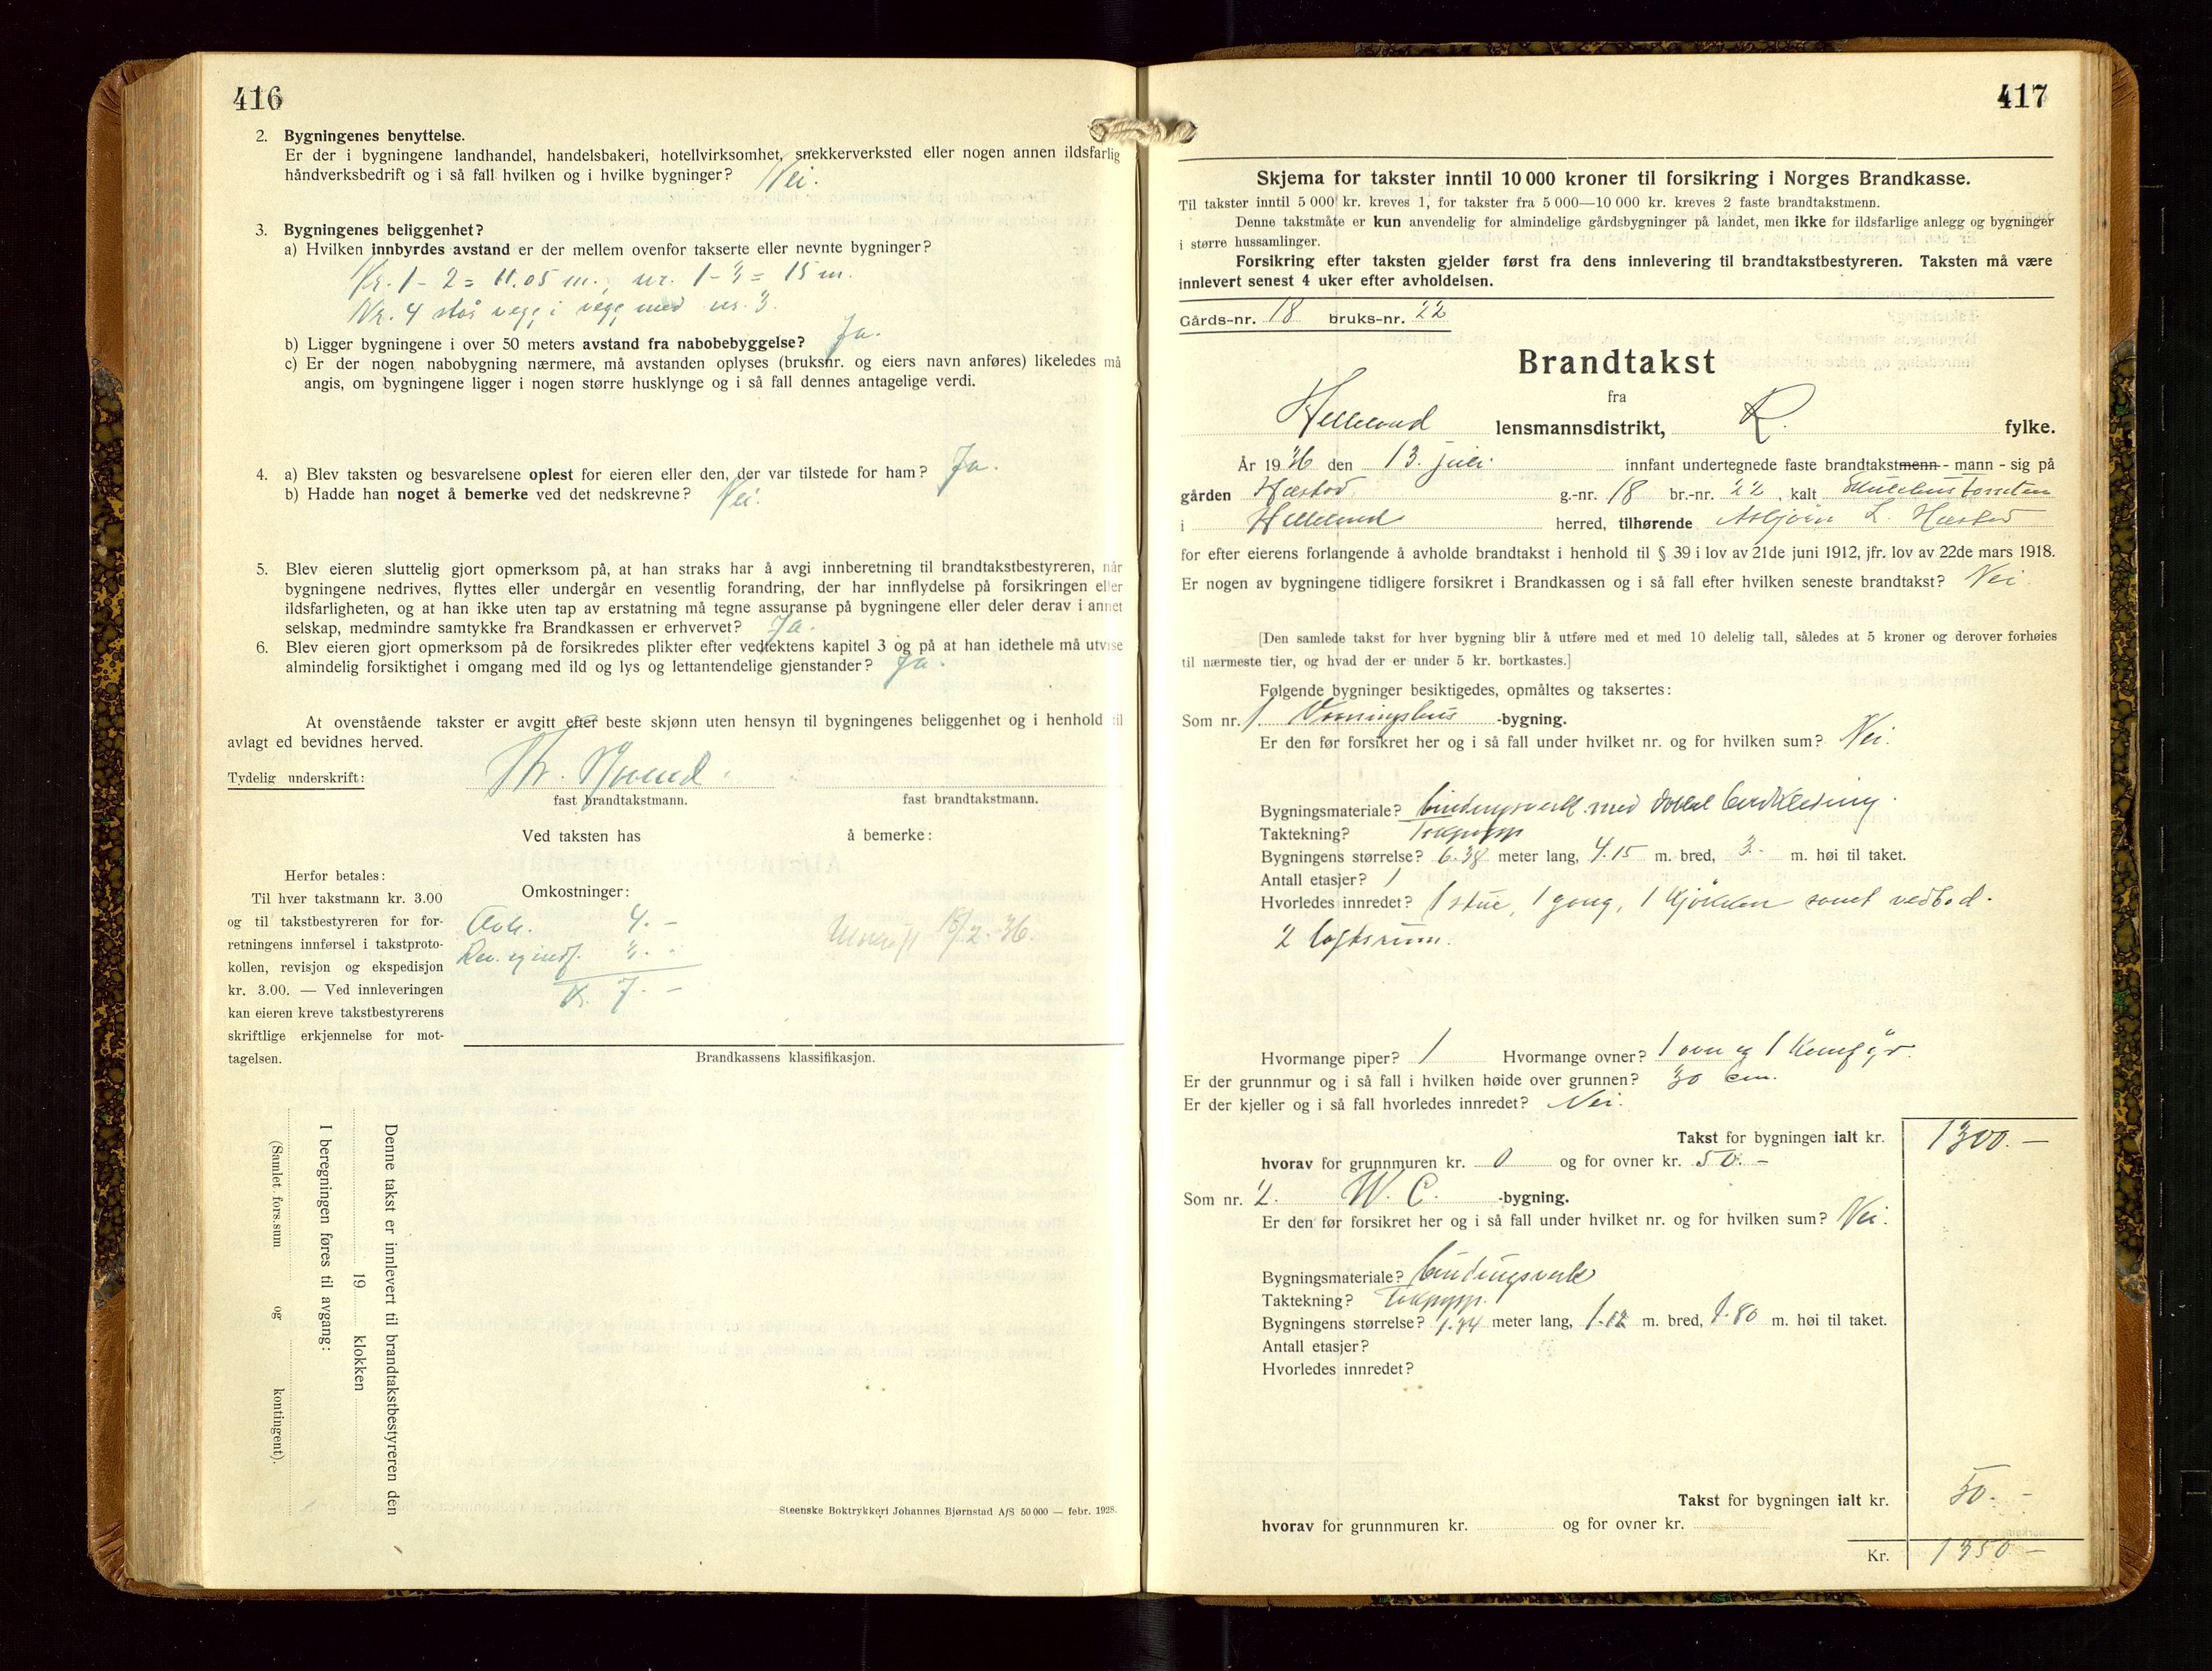 416
2. Bygningenes benyttelse.
Er der i bygningene landhandel, handelsbakeri, hotellvirksomhet, snekkerverksted eller nogen annen ildsfarlig
håndverksbedrift og i så fall hvilken og i hvilke bygninger? Nei.
3. Bygningenes beliggenhet?
a) Hvilken innbyrdes avstand er der mellem ovenfor takserte eller nevnte bygninger?
Nr. 1 - 2 = 11.05 m., nr. 1 - 3 = 15 m.
Nr. 4 står vegg i vegg med nr. 3.
b) Ligger bygningene i over 50 meters avstand fra nabobebyggelse? Ja.
c) Er der nogen nabobygning nærmere, må avstanden oplyses (bruksnr. og eiers navn anføres) likeledes må
angis, om bygningene ligger i nogen større husklynge og i så fall dennes antagelige verdi.
4. a) Blev taksten og besvarelsene oplest for eieren eller den, der var tilstede for ham? Ja.
b) Hadde han noget å bemerke ved det nedskrevne? Nei.
5. Blev eieren sluttelig gjort opmerksom på, at han straks har å avgi innberetning til brandtakstbestyreren, når
bygningene nedrives, flyttes eller undergår en vesentlig forandring, der har innflydelse på forsikringen eller
ildsfarligheten, og at han ikke uten tap av erstatning må tegne assuranse på bygningene eller deler derav i annet
selskap, medmindre samtykke fra Brandkassen er erhvervet? Ja.
6. Blev eieren gjort opmerksom på de forsikredes plikter efter vedtektens kapitel 3 og på at han idethele må utvise
almindelig forsiktighet i omgang med ild og lys og lettantendelige gjenstander? Ja.
At ovenstående takster er avgitt efter beste skjønn uten hensyn til bygningenes beliggenhet og i henhold til
avlagt ed bevidnes herved.
Tydelig underskrift:
fast brandtakstmann. fast brandtakstmann.
Ved taksten has å bemerke:
Herfor betales:
Til hver takstmann kr. 3.00
og til takstbestyreren for for-
retningens innførsel i takstproto-
kollen, revisjon og ekspedisjon
kr. 3.00. — Ved innleveringen
kan eieren kreve takstbestyrerens
skriftlige erkjennelse for mot-
tagelsen.
Omkostninger:
4. -
Rev. og indf. 3. -
Kr. 7. -
Utskrift 18/2-36.
Brandkassens klassifikasjon.
Denne takst er innlevert til brandtakstbestyreren den
19 klokken
I beregningen føres til avgang:
(Samlet fors.sum og kontingent).
Steenske Boktrykkeri Johannes Bjørnstad A/S 50 000 — febr. 1928.
417
Skjema for takster inntil 10 000 kroner til forsikring i Norges Brandkasse.
Til takster inntil 5 000 kr. kreves 1, for takster fra 5 000—10 000 kr. kreves 2 faste brandtakstmenn.
Denne takstmåte er kun anvendelig for almindelige gårdsbygninger på landet, men ikke for ildsfarlige anlegg og bygninger
i større hussamlinger.
Forsikring efter taksten gjelder først fra dens innlevering til brandtakstbestyreren. Taksten må være
innlevert senest 4 uker efter avholdelsen.
Gårds-nr. 18 bruks-nr. 22
Brandtakst
fra
Helleland lensmannsdistrikt, R. fylke.
År 1936 den 13. juli innfant undertegnede faste brandtakstmenn - mann - sig på
gården Hæstad g.-nr. 18 br.-nr. 22, kalt Skulehustomten
i Helleland herred, tilhørende Asbjørn L. Hæstad
for efter eierens forlangende å avholde brandtakst i henhold til § 39 i lov av 21de juni 1912, jfr. lov av 22de mars 1918.
Er nogen av bygningene tidligere forsikret i Brandkassen og i så fall efter hvilken seneste brandtakst? Nei
[Den samlede takst for hver bygning blir å utføre med et med 10 delelig tall, således at 5 kroner og derover forhøies
til nærmeste tier, og hvad der er under 5 kr. bortkastes.]
Følgende bygninger besiktigedes, opmåltes og taksertes:
Som nr. 1 Våningshus -bygning.
Er den før forsikret her og i så fall under hvilket nr. og for hvilken sum? Nei.
Bygningsmateriale? bindingsverk med dobbel bordkledning.
Taktekning? Takpapp
Bygningens størrelse? 6.38 meter lang, 4.15 m. bred, 3.- m. høi til taket.
Antall etasjer? 1
Hvorledes innredet? 1 stue, 1 gang, 1 kjøkken samt vedbod.
2 loftsrum.
Hvormange piper? 1 Hvormange ovner? 1 ovn og 1 komfyr.
Er der grunnmur og i så fall i hvilken høide over grunnen? 30 cm.
Er der kjeller og i så fall hvorledes innredet? Nei.
Takst for bygningen ialt kr. 1300.-
hvorav for grunnmuren kr. 0 og for ovner kr. 50.-
Som nr. 2. W. C. -bygning.
Er den før forsikret her og i så fall under hvilket nr. og for hvilken sum? Nei.
Bygningsmateriale? bindingsverk
Taktekning? Takpapp.
Bygningens størrelse? 1.34 meter lang, 1.12 m. bred, 1.80 m. høi til taket.
Antall etasjer?
Hvorledes innredet?
Takst for bygningen ialt kr. 50.-
hvorav for grunnmuren kr. og for ovner kr.
Kr. 1350-